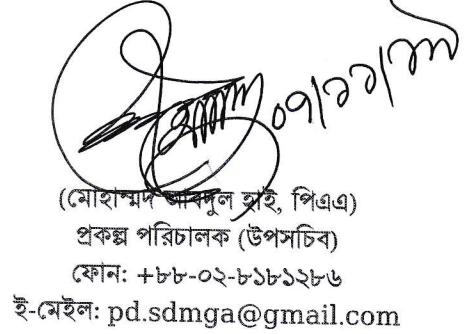 ০৭/১১/১৯
(মোহাম্মদ আবদুল হাই, পিএএ)
প্রকল্প পরিচালক (উপসচিব)
ফোন: +৮৮-০২-৮১৮১২৮৬
ই-মেইল: pd.sdmga@gmail.com